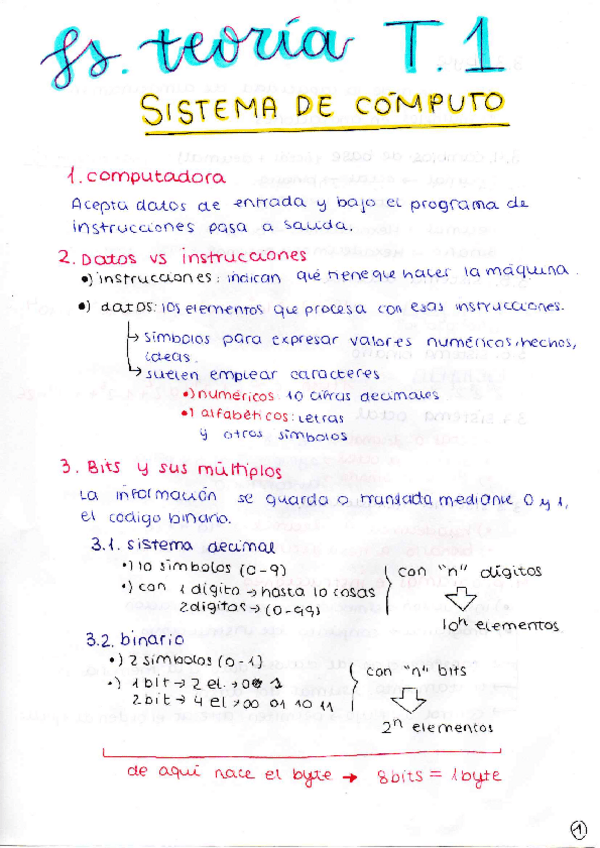 fs. teoría T.1
SISTEMA DE CÓMPUTO
1. computadora
Acepta datos de entrada y bajo el programa de
instrucciones pasa a salida.
2. Datos vs instrucciones
•) instrucciones: indican qué tiene que hacer la máquina.
•) datos: los elementos que procesa con esas instrucciones.
↳ símbolos para expresar valores numéricos, hechos,
ideas.
↳ suelen emplear caracteres
•) numéricos: 10 cifras decimales
•) alfabéticos: letras
y otros símbolos
3. Bits y sus múltiplos
La información se guarda o translada mediante 0 y 1,
el codigo binario.
3.1. sistema decimal
•) 10 símbolos (0-9)
•) con 1 dígito → hasta 10 cosas
2 digitos → (0-99)
con "n" dígitos
10ⁿ elementos.
3.2. binario
•) 2 símbolos (0-1)
•) 1 bit → 2 el. → 0 1
2 bit → 4 el → 00 01 10 11
con "n" bits
2ⁿ elementos
de aquí nace el byte → 8 bits = 1 byte
1